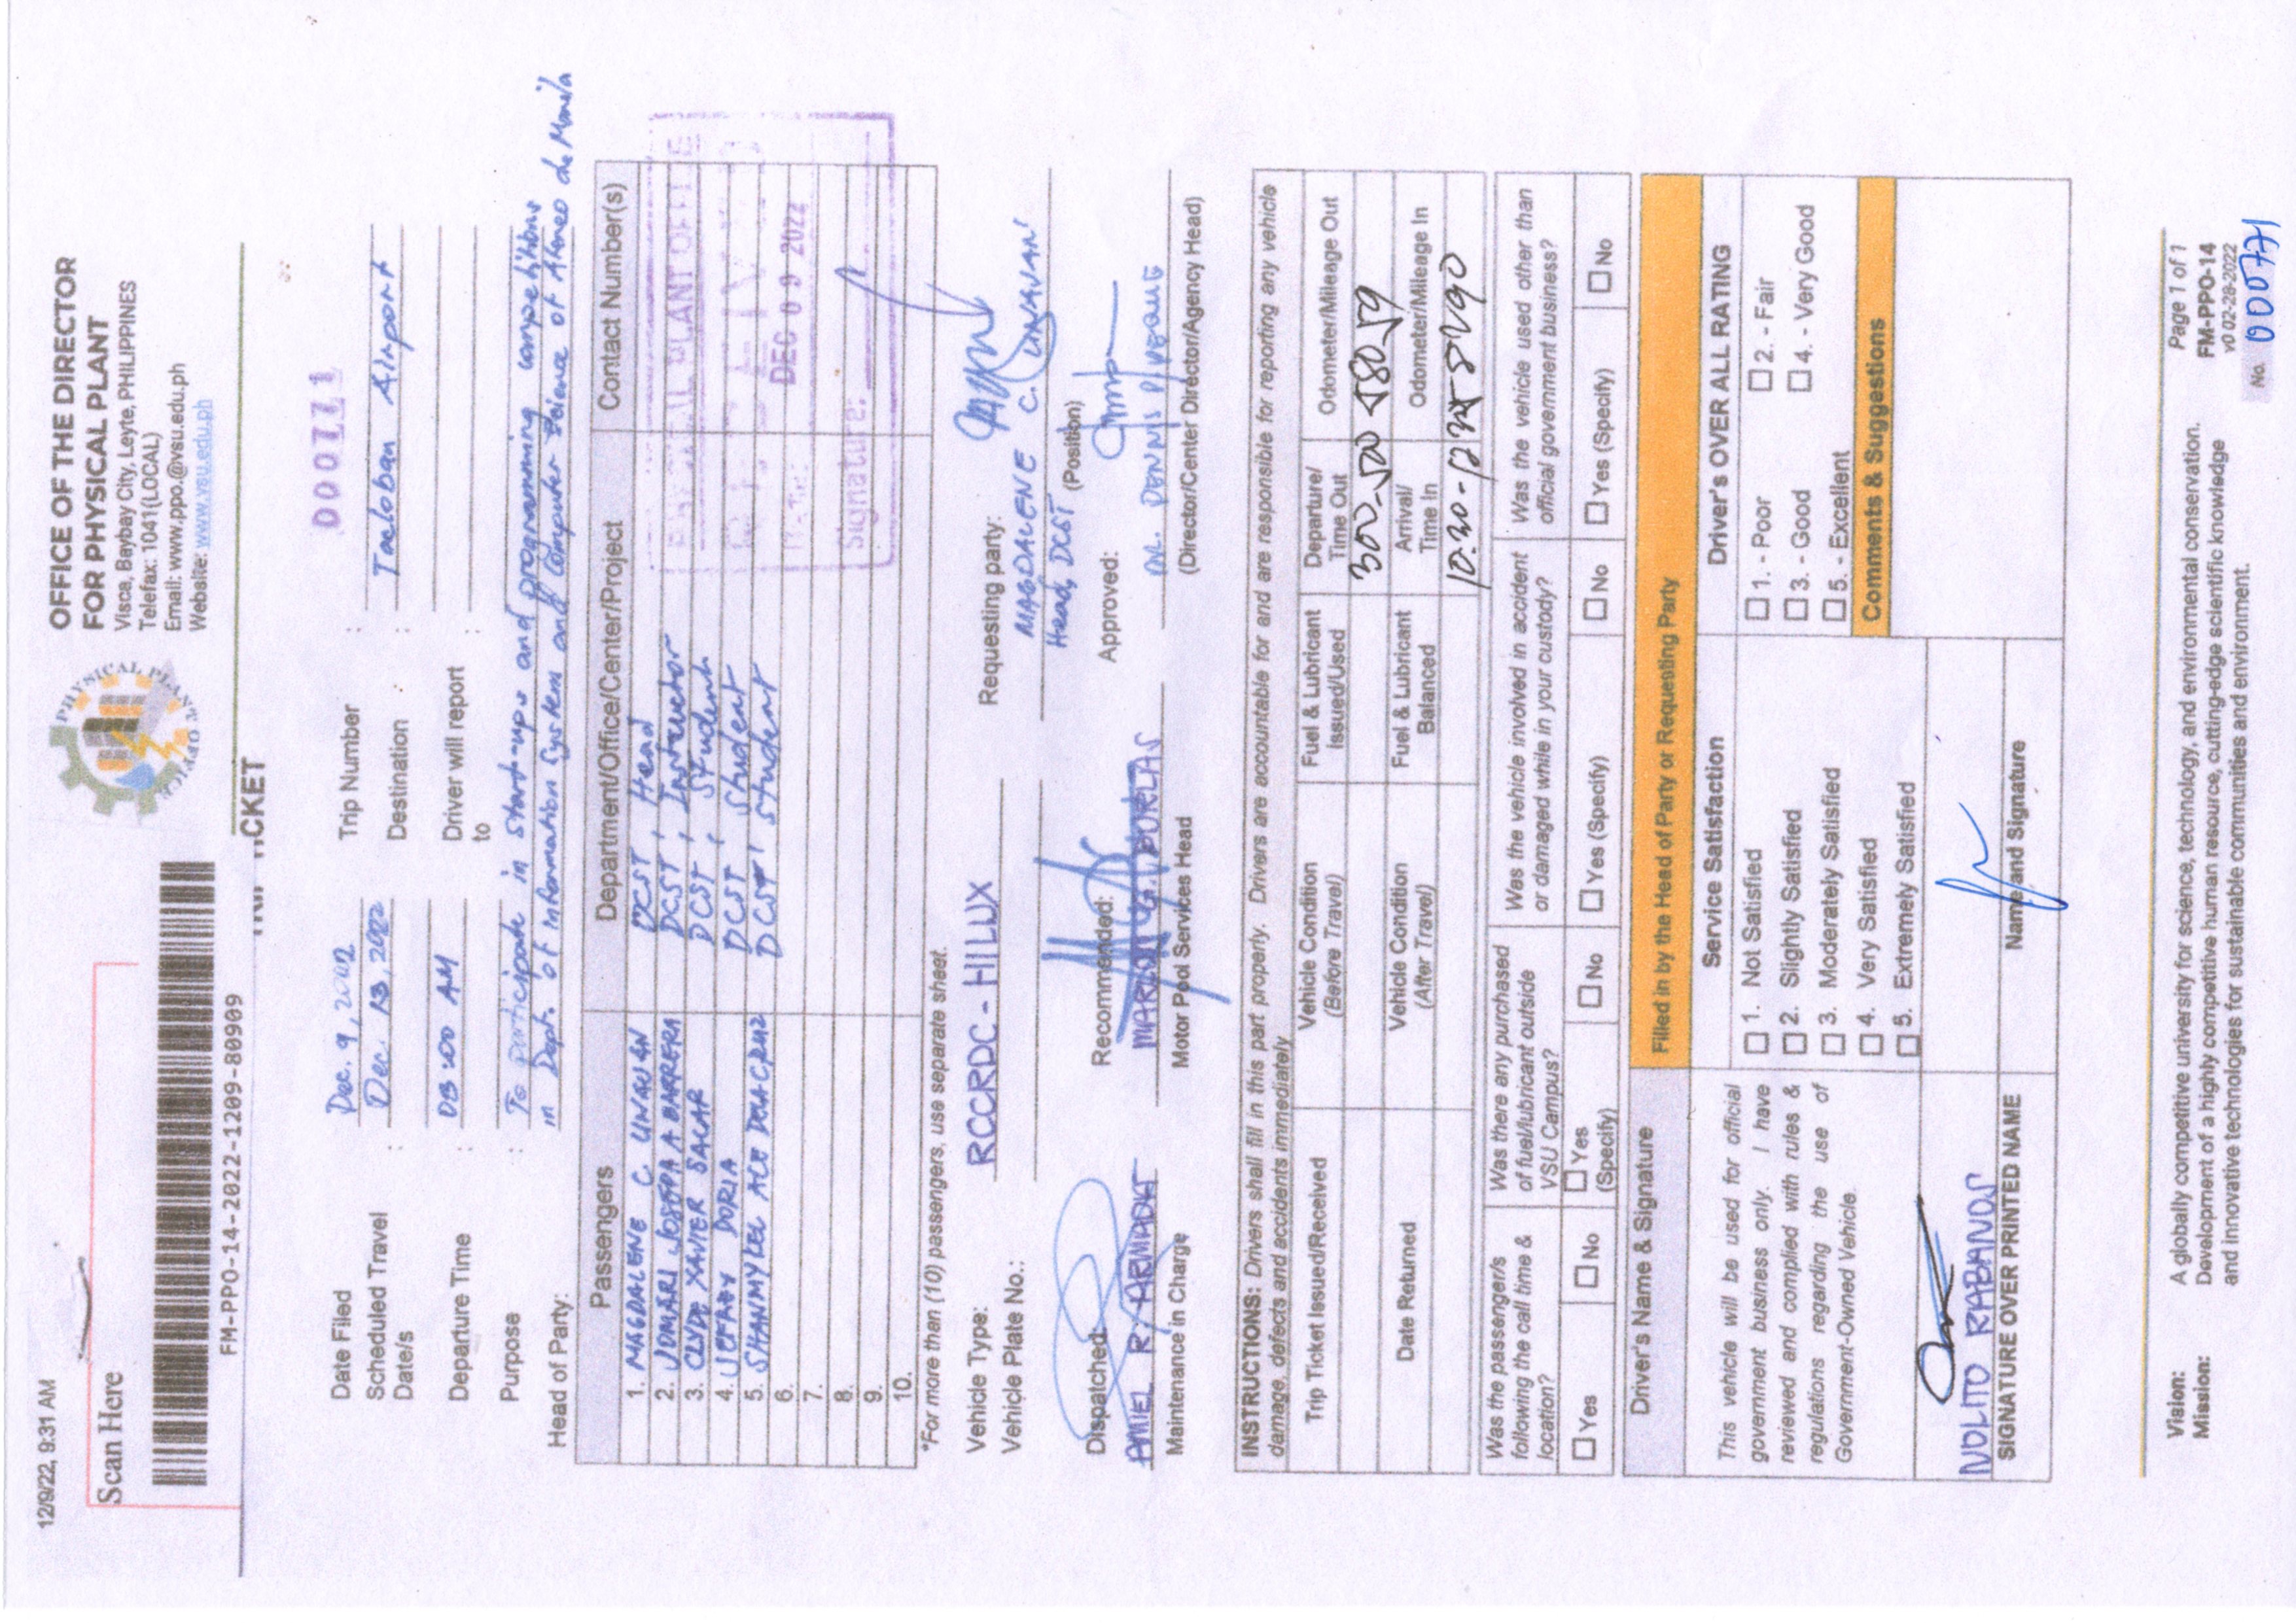 12/9/22, 9:31 AM
Scan Here
FM-PPO-14-2022-1209-80909
PHYSICAL PLANT OFFICE
OFFICE OF THE DIRECTOR
FOR PHYSICAL PLANT
Visca, Baybay City, Leyte, PHILIPPINES
Telefax: 1041(LOCAL)
Email: www.ppo.@vsu.edu.ph
Website: www.vsu.edu.ph
TRIP TICKET
Date Filed Dec. 9, 2022 Trip Number :
Scheduled Travel Date/s : Dec. 13, 2022 Destination : Tacloban Airport
Departure Time : 03:00 AM Driver will report to :
Purpose : To participate in start-ups and programming competitions
Head of Party: in Dept. of Information System and Computer Science of Ateneo de Manila
Passengers Department/Office/Center/Project Contact Number(s)
1. MAGDALENE C. UNAJAN DCST, Head
2. JOMARI JOSEPH A BARRERA DCST, Instructor
3. CLYDE XAVIER SALAR DCST, Student
4. JEFROY DORIA DCST, Student
5. SHANMYLEL ACE DELA CRUZ DCST, Student
6.
7.
8.
9.
10.
PHYSICAL PLANT OFFICE
DEC 09 2022
Signature:
*For more than (10) passengers, use separate sheet.
Vehicle Type: RCCRDC - HILUX
Vehicle Plate No.:
Requesting party:
MAGDALENE C. UNAJAN
Head, DCST (Position)
Dispatched: Recommended: Approved:
MARLON G. BURLAS
Maintenance in Charge Motor Pool Services Head (Director/Center Director/Agency Head)
INSTRUCTIONS: Drivers shall fill in this part properly. Drivers are accountable for and are responsible for reporting any vehicle
damage, defects and accidents immediately
Trip Ticket Issued/Received Vehicle Condition (Before Travel) Fuel & Lubricant Issued/Used Departure/ Time Out Odometer/Mileage Out
Date Returned Vehicle Condition (After Travel) Fuel & Lubricant Balanced Arrival/ Time In Odometer/Mileage In
Was the passenger/s following the call time & location?
Yes No
Was there any purchased of fuel/lubricant outside VSU Campus?
Yes (Specify) No
Was the vehicle involved in accident or damaged while in your custody?
Yes (Specify) No
Was the vehicle used other than official government business?
Yes (Specify) No
Driver's Name & Signature
Filled in by the Head of Party or Requesting Party
This vehicle will be used for official
government business only. I have
reviewed and complied with rules &
regulations regarding the use of
Government-Owned Vehicle.
Service Satisfaction
1. Not Satisfied
2. Slightly Satisfied
3. Moderately Satisfied
4. Very Satisfied
5. Extremely Satisfied
Driver's OVER ALL RATING
1. - Poor 2. - Fair
3. - Good 4. - Very Good
5. - Excellent
Comments & Suggestions
NOLITO RABANOS
SIGNATURE OVER PRINTED NAME
Name and Signature
Vision: A globally competitive university for science, technology, and environmental conservation.
Mission: Development of a highly competitive human resource, cutting-edge scientific knowledge
and innovative technologies for sustainable communities and environment.
Page 1 of 1
FM-PPO-14
v0 02-28-2022
No. 000771